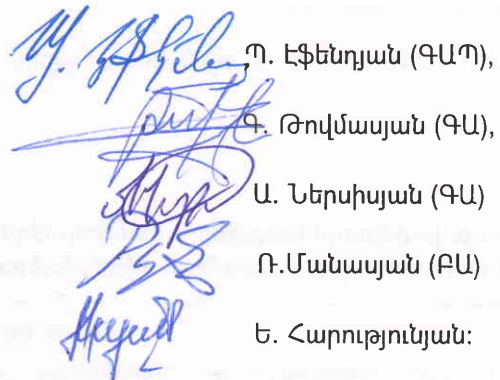 Պ. Էֆենդյան (ԳԱՊ),
Գ. Թովմասյան (ԳԱ),
Ա. Ներսիսյան (ԳԱ)
Ռ.Մանասյան (ԲԱ)
Ե. Հարությունյան: